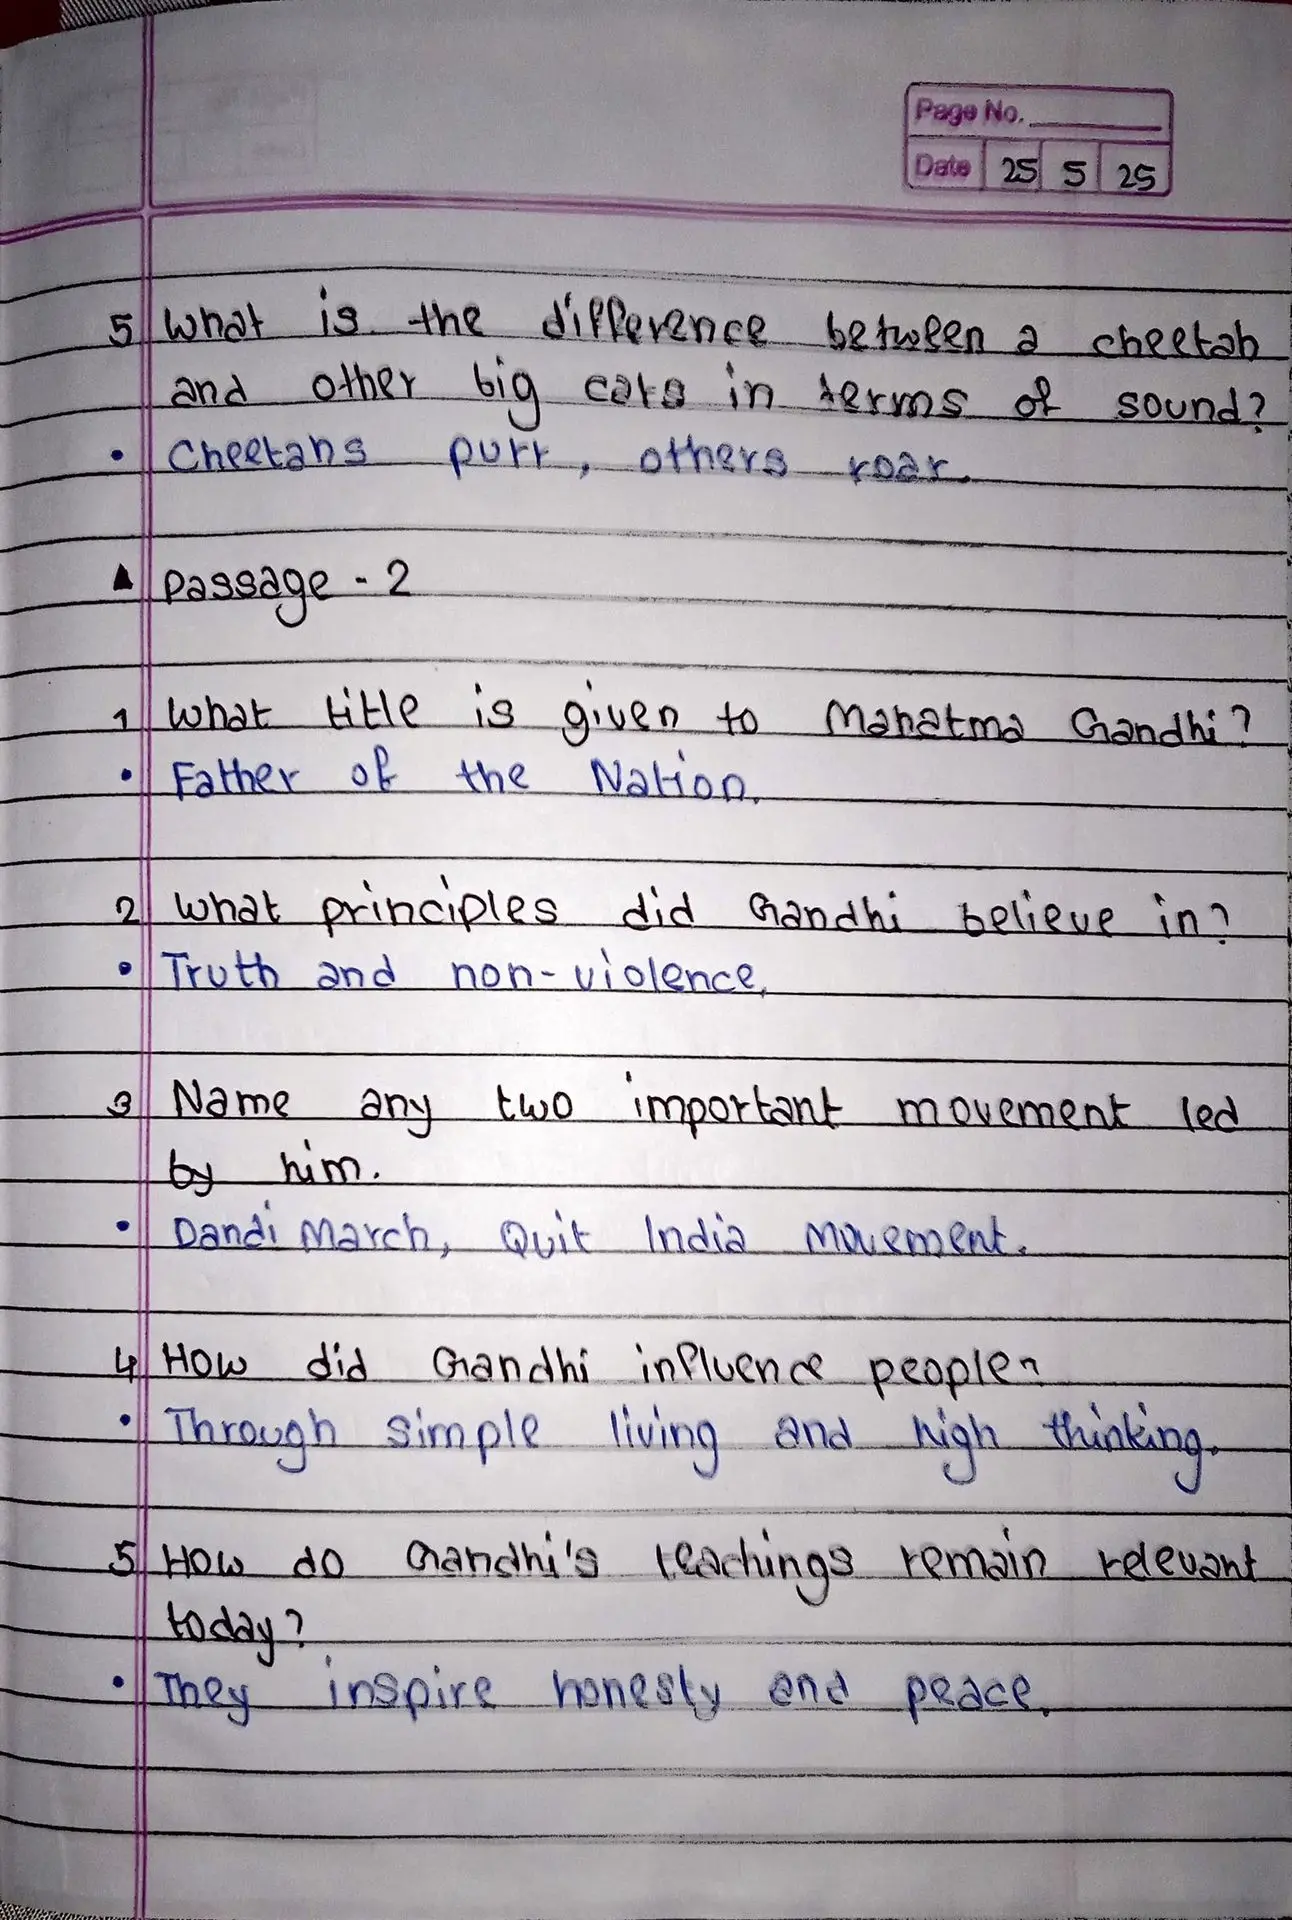 Page No.
Date 25 5 25
5 What is the difference between a cheetah
and other big cats in terms of sound?
• Cheetahs purr, others roar.
▲ Passage - 2
1 What title is given to Mahatma Gandhi?
• Father of the Nation.
2 What principles did Gandhi believe in?
• Truth and non-violence.
3 Name any two important movement led
by him.
• Dandi March, Quit India Movement.
4 How did Gandhi influence people?
• Through simple living and high thinking.
5 How do Gandhi's teachings remain relevant
today?
• They inspire honesty and peace.